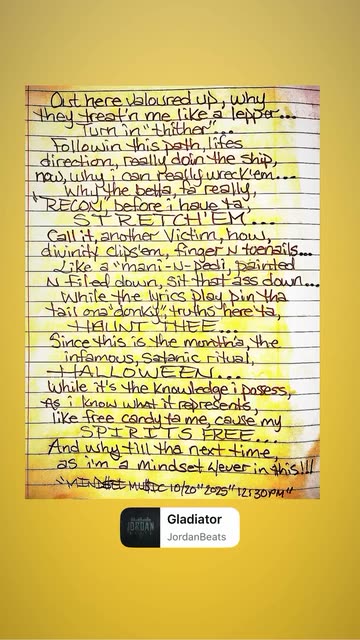 Out here valoured up, why
they treat'n me like a lepper...
Turn in "thither"...
Followin this path, lifes
direction, really doin the ship,
now, why i can really wreck'em...
Why the betta, ta really,
"RECON" before i have ta,
STRETCH'EM....
Call it, another Victim, how,
divinity clips'em, finger N toenails...
Like a "mani-N-pedi, painted
N filed down, sit that ass down...
While the lyrics play pin tha
tail ona "donky", truths here ta,
HAUNT THEE...
Since this is the month'a, the
infamous, satanic ritual,
HALLOWEEN...
While it's the knowledge i posess,
As i know what it represents,
like free candy ta me, cause my
SPIRITS FREE....
And why till tha next time,
as i'm a mindset 4ever in this!!!
"MINDSET MUSIC 10/20"2025"12:30PM"
JORDAN
Gladiator
JordanBeats